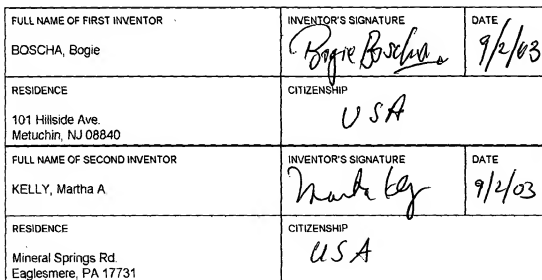 FULL NAME OF FIRST INVENTOR
BOSCHA, Bogie
INVENTOR'S SIGNATURE
Bogie Boscha
DATE
9/2/03
RESIDENCE
101 Hillside Ave.
Metuchin, NJ 08840
CITIZENSHIP
USA
FULL NAME OF SECOND INVENTOR
KELLY, Martha A
INVENTOR'S SIGNATURE
DATE
9/2/03
RESIDENCE
Mineral Springs Rd.
Eaglesmere, PA 17731
CITIZENSHIP
USA